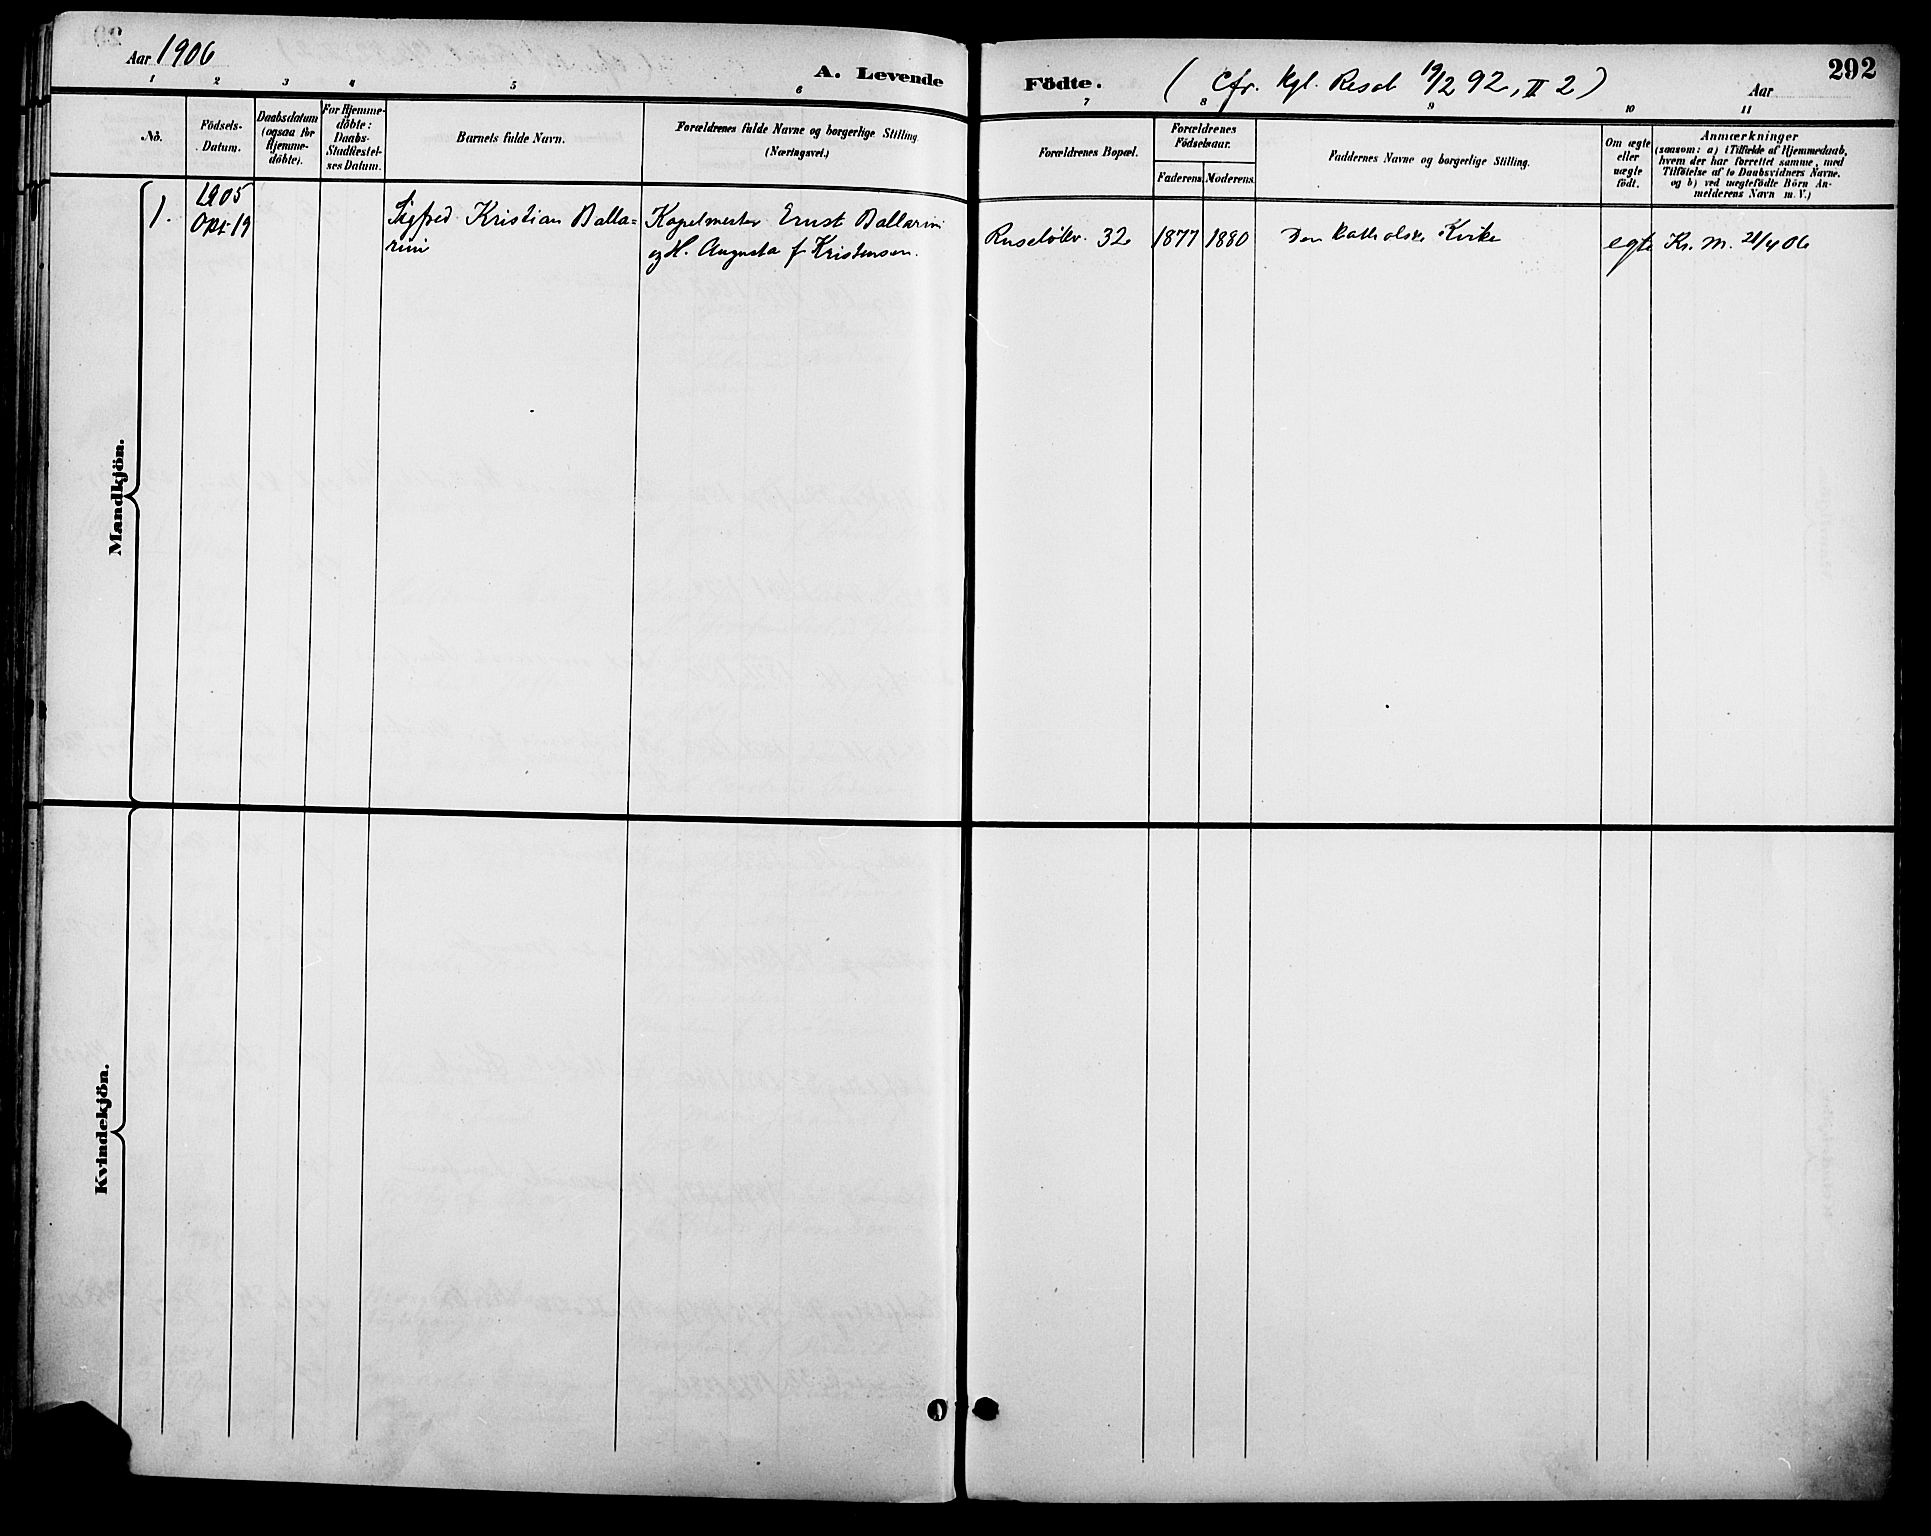 Aar 1906
A. Levende Födte.
( Cfr. Kgl. Resol 19/2 92, II 2 )
Aar
292
1 2 3 4 5 6 7 8 9 10 11
No.
Födsels-
Datum.
Daabsdatum
(ogsaa for
Hjemme-
döbte).
For Hjemme-
döbte:
Daabs-
Stadfæstel-
ses Datum.
Barnets fulde Navn.
Forældrenes fulde Navne og borgerlige Stilling
(Næringsvei.)
Forældrenes Bopæl.
Forældrenes
Födselsaar.
Faderens Moderens
Faddernes Navne og borgerlige Stilling.
Om ægte
eller
uægte
födt.
Anmærkninger
(saasom: a) i Tilfælde af Hjemmedaab,
hvem der har forrettet samme, med
Tilföielse af to Daabsvidners Navne.
og b) ved uægtefödte Börn An-
melderens Navn m. V.)
Mandkjön.
1905
1. Okt 19 Sigfred Kristian Balla= Kapelmester Ernst Ballarini Ruseløkv. 32 1877 1880 Den katholske Kirke egte Kr. M. 21/4 06
rini og H. Augusta f Kristensen.
Kvindekjön.